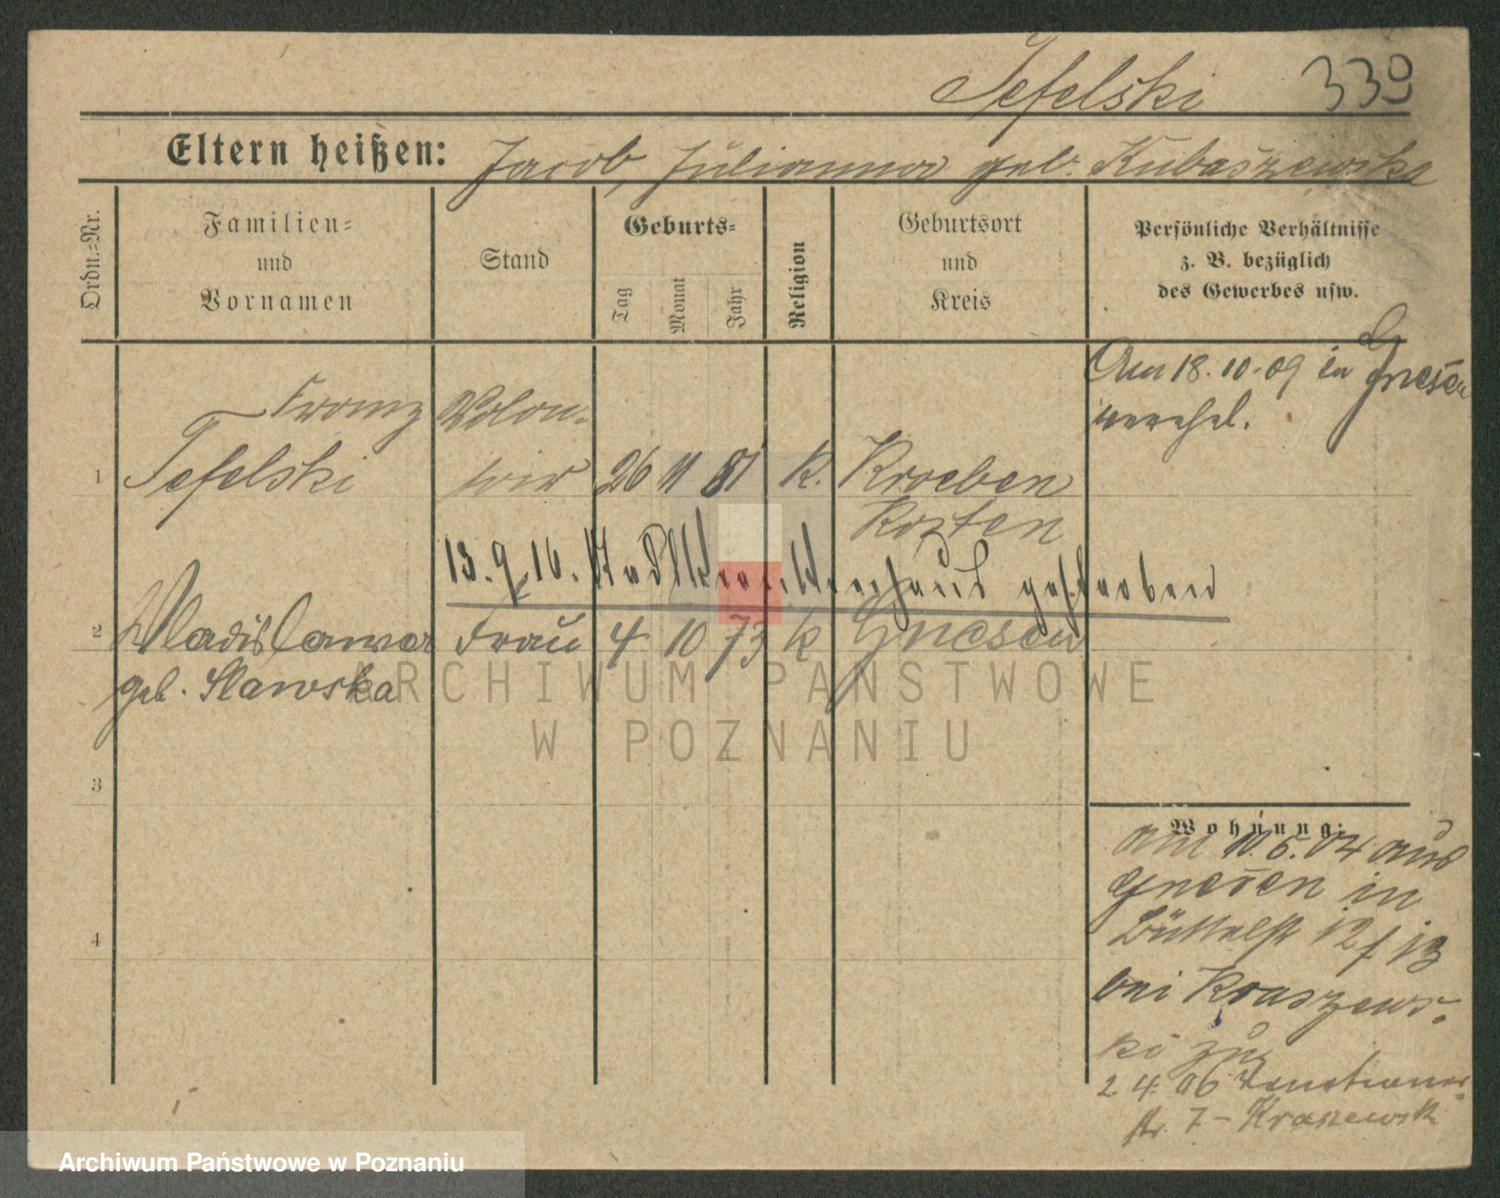 Tefelski 339
Eltern heißen: Jacob, Julianna geb. Kubaszewska
Ordn.-Nr.
Familien-
und
Vornamen
Stand
Geburts-
Tag
Monat
Jahr
Religion
Geburtsort
und
Kreis
Persönliche Verhältnisse
z. B. bezüglich
des Gewerbes usw.
Am 18.10.09 in Gnesen
verehel.
Franz Volon-
1 Tefelski 26 11 81 k. Kroeben
Kosten
13.9.16. Stadtkrankenhaus gestorben
2 Wladislawa Frau 4 10 73 k Gnesen
geb. Slawska
3
4
Wohnung:
am 10.5.04 aus
Gnesen in
Büttelst 12/13
bei Kraszews-
ki zug
2.4.06
str. 7 - Kraszewsk
ARCHIWUM PAŃSTWOWE
W POZNANIU
Archiwum Państwowe w Poznaniu